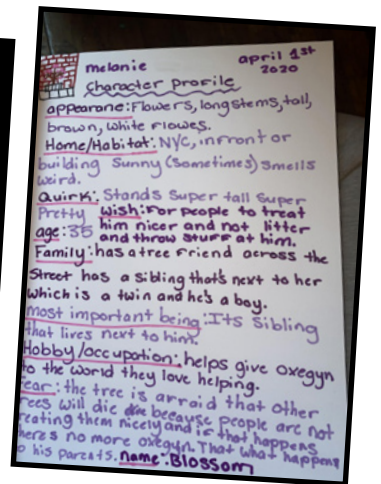 melanie april 1st
2020
character profile
appearane: Flowers, long stems, tall,
brown, white flowes.
Home/Habitat: NYC, infront or
building Sunny (sometimes) smells
weird.
Quirk: Stands super tall super
Pretty wish: For people to treat
him nicer and not litter
age: 35 and throw stuff at him.
Family: has a tree friend across the
Street has a sibling that's next to her
which is a twin and he's a boy.
most important being: Its sibling
that lives next to him.
Hobby/occupation: helps give oxegyn
to the world they love helping.
Fear: the tree is arraid that other
trees will die because people are not
treating them nicely and if that happens
theres no more oxegyn. That what happend
to his parents. name: Blossom